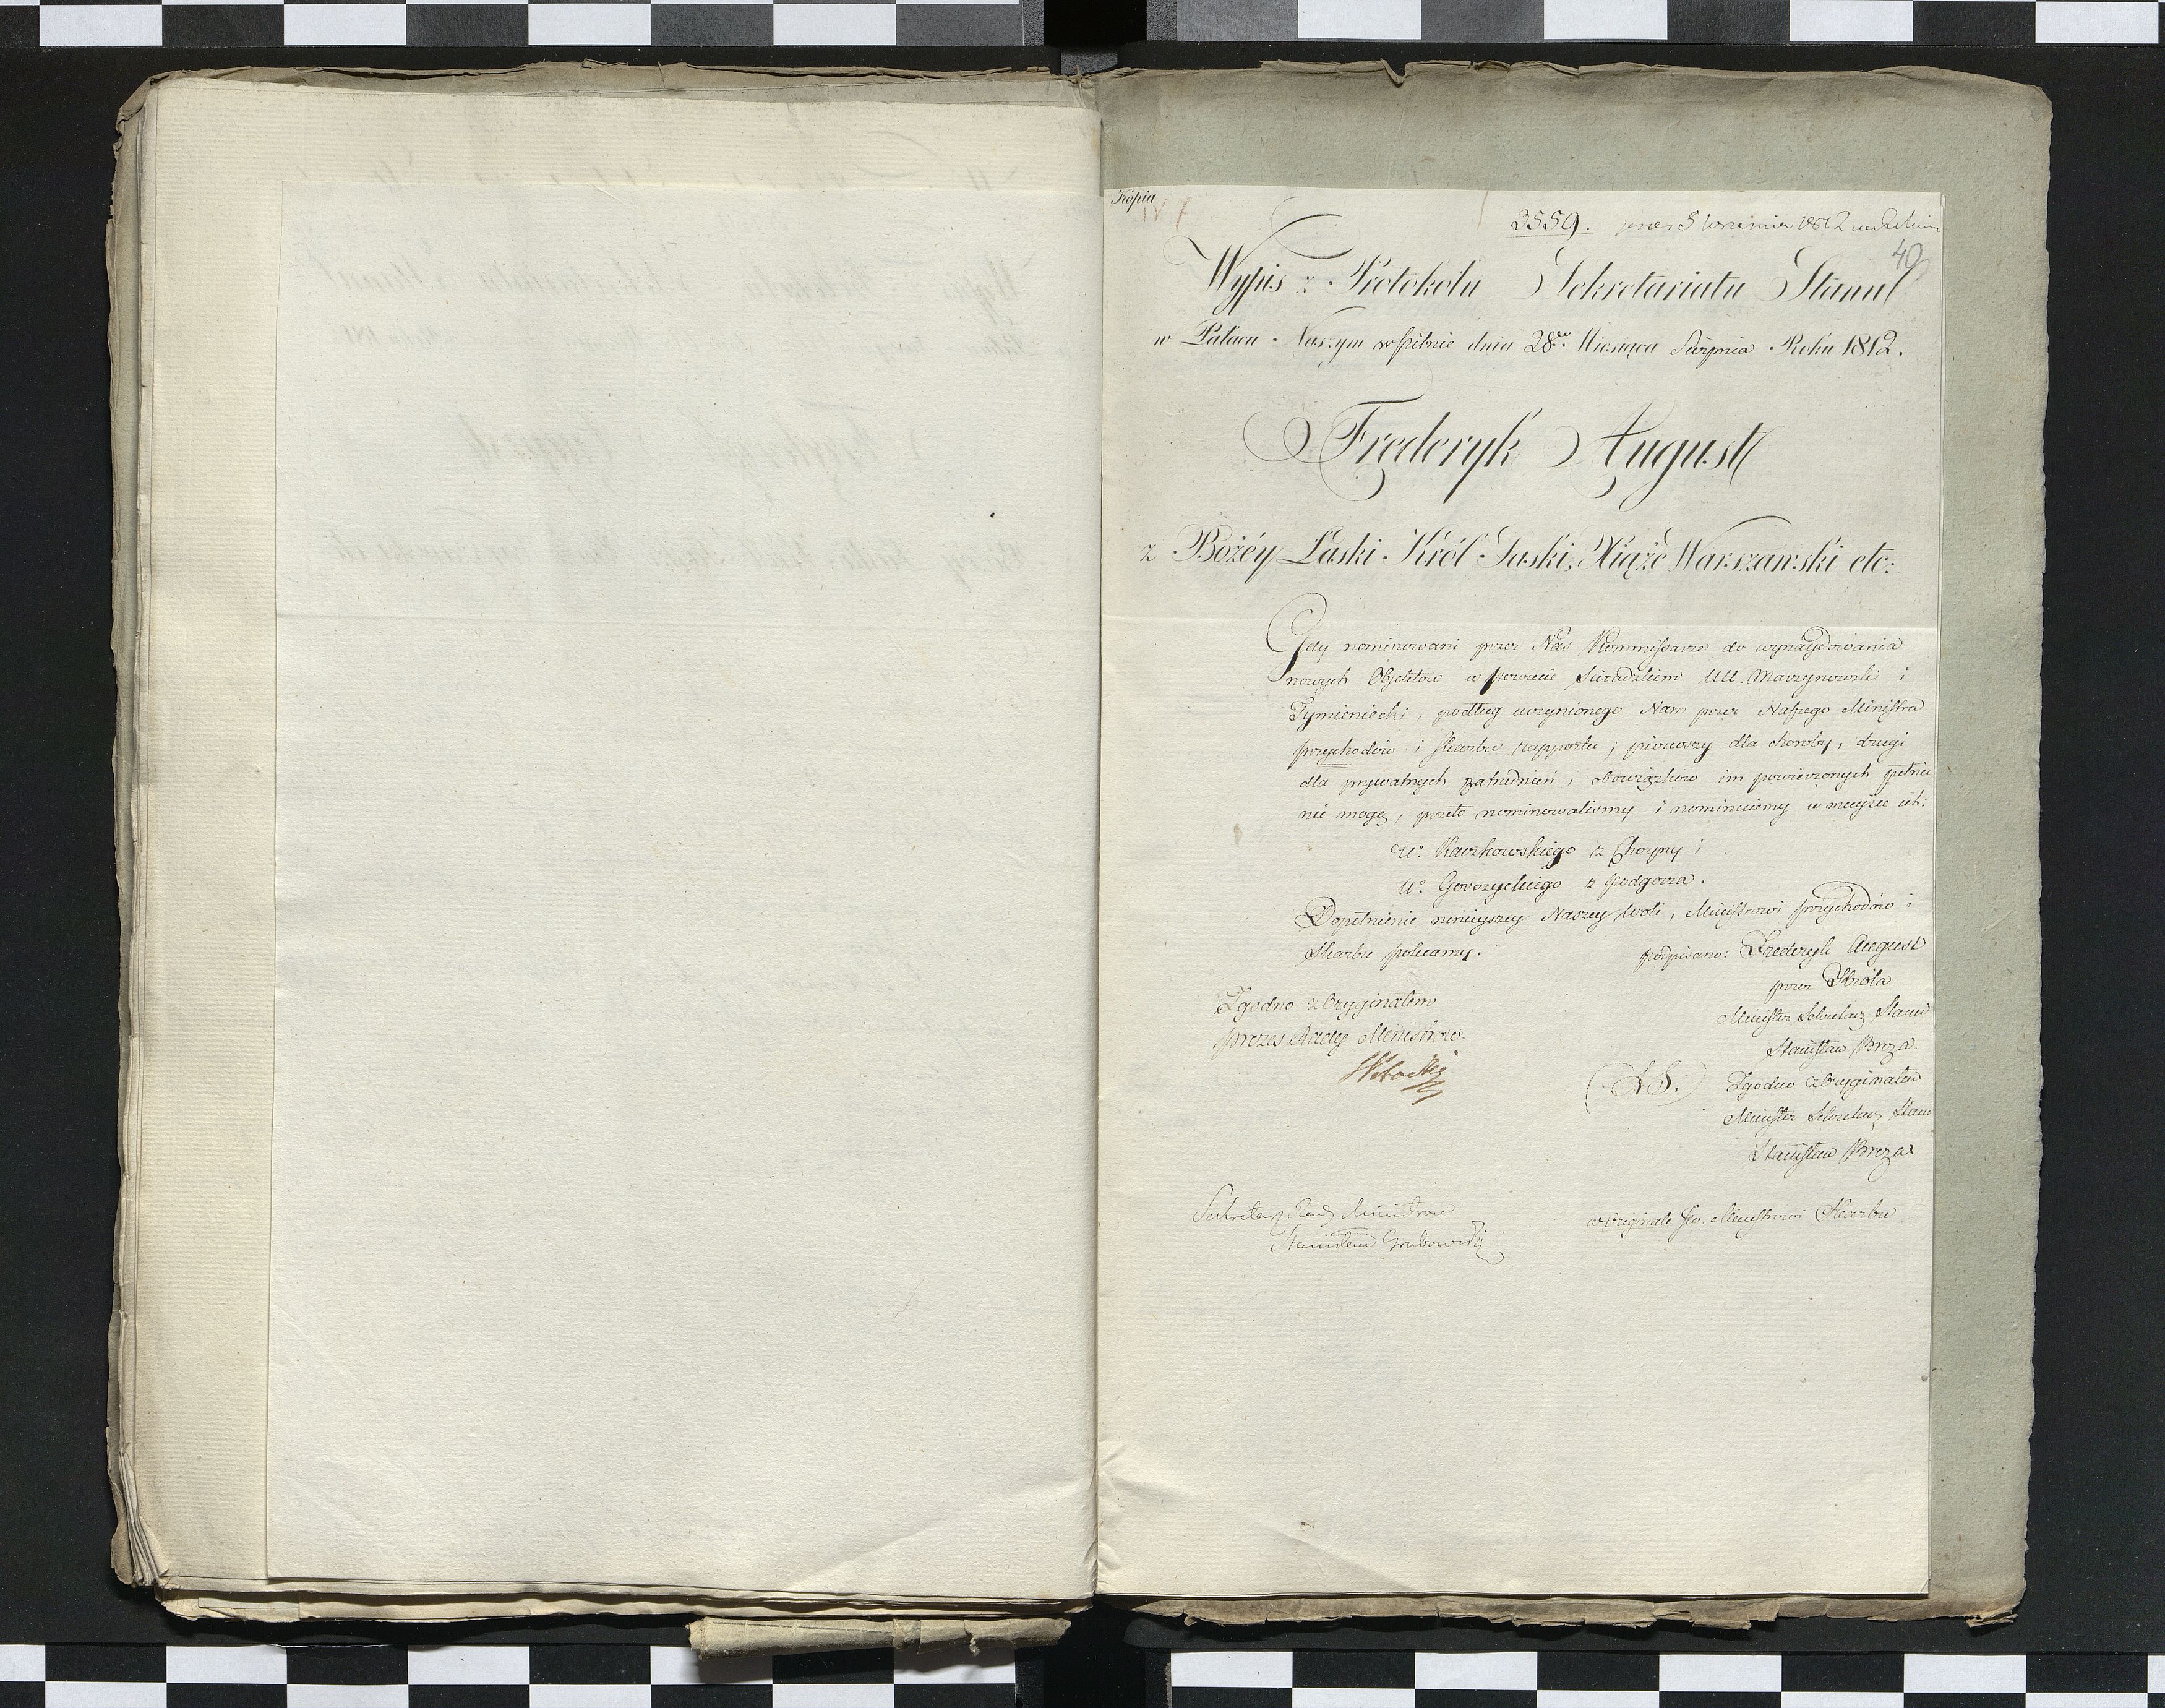 Kopia
3559. 5 Września 1812
40
Wypis z Protokołu Sekretariatu Stanu
w Pałacu Naszym w Pilnie dnia 28go Miesiąca Sierpnia Roku 1812.
Fryderyk August
z Bożéy Łaski Król Saski, Xiążę Warszawski etc:
Gdy nominowani przez Nas Kommissarze do wynaydowania
nowych Objektow w powiecie Sieradzkim UU. Marzynowski i
Tymieniecki, podług uczynionego Nam przez Naszego Ministra
Przychodów i Skarbu rapportu, pierwszy dla choroby, drugi
dla prywatnych zatrudnień, obowiązkow im powierzonych pełnić
nie mogą, przeto nominowalismy i nominuiemy w mieysce ich:
Ur. Kaczkowskiego z Choyny i
Ur. Gorzyckiego z Podgorza.
Dopełnienie ninieyszey Naszey Woli, Ministrowi Przychodów i
Skarbu polecamy.
podpisano: Frederyk August
przez Króla
Minister Sekretarz Stanu
Stanisław Breza.
(L.S.) Zgodno z Oryginałem
Minister Sekretarz Stanu
Stanisław Breza
Zgodno z Oryginałem
Prezes Rady Ministrow.
Sekretarz Rady Ministrow
Stanisław Grabowski
w Originale Jw. Ministrowi Skarbu